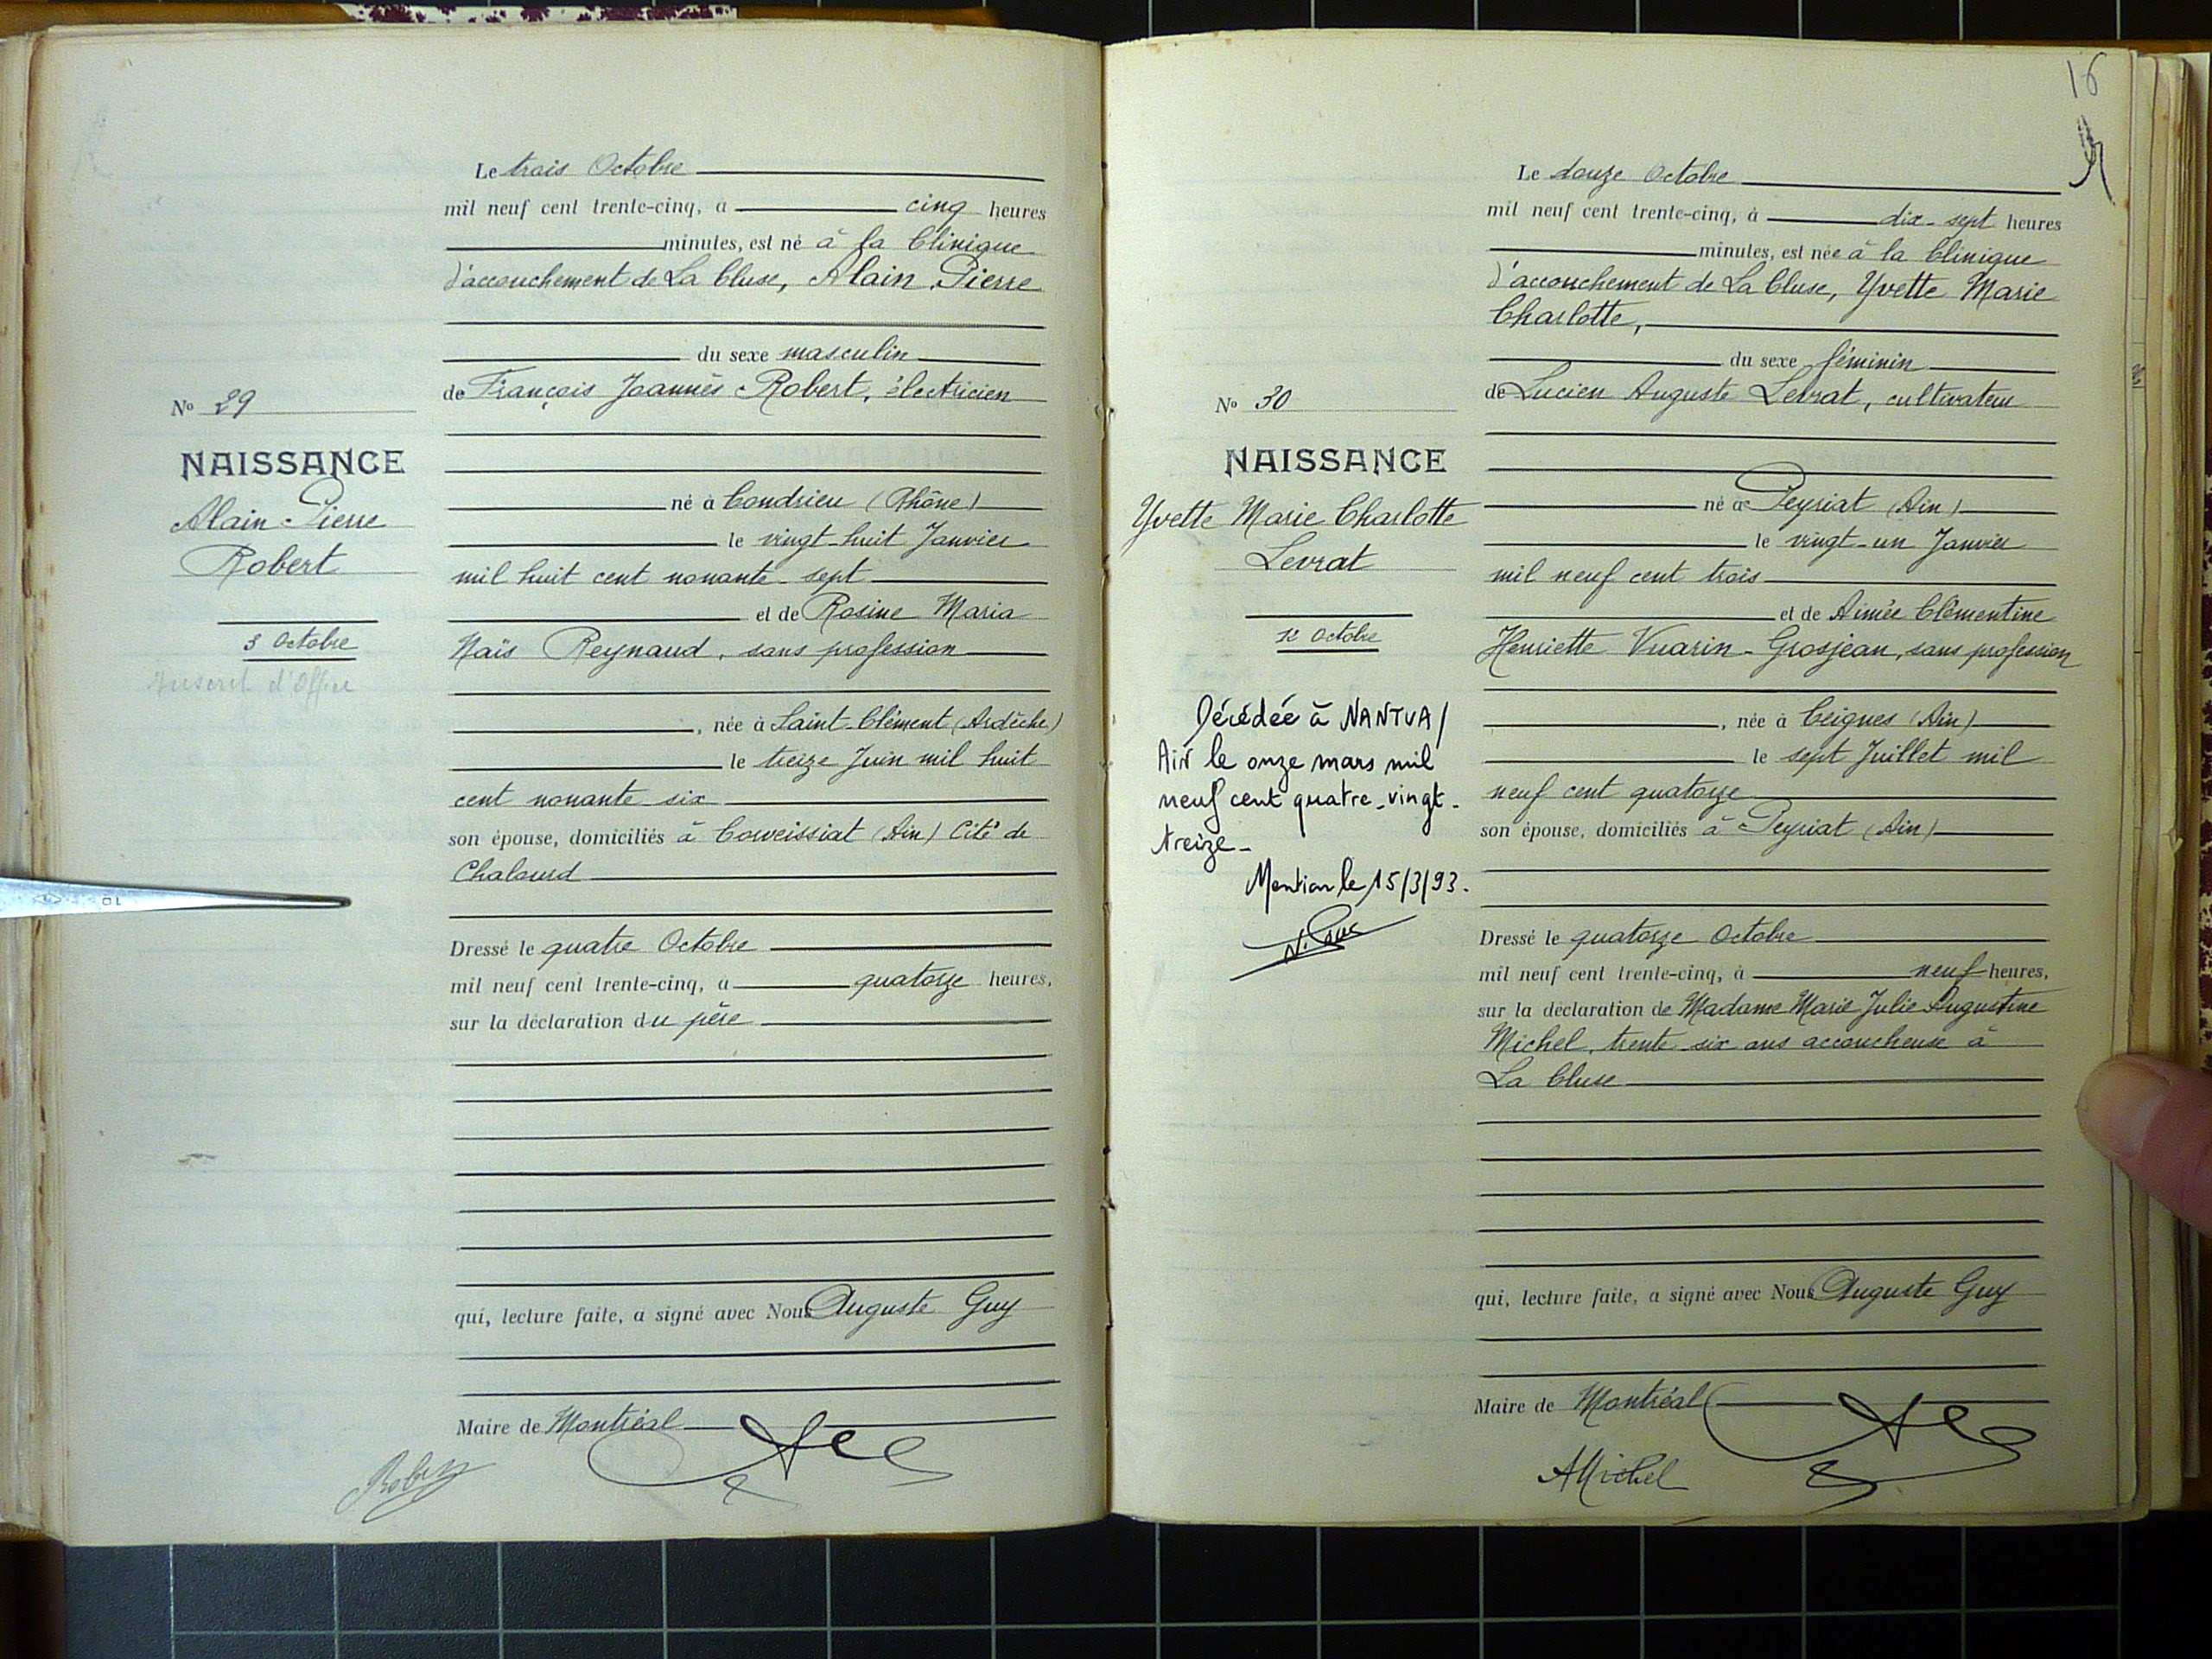 Le trois Octobre
mil neuf cent trente-cinq, à cinq heures
minutes, est né à la Clinique
d'accouchement de La Cluse, Alain Pierre
du sexe masculin
de François Joannès Robert, électricien
né à Condrieu (Rhône)
le vingt-huit Janvier
mil huit cent nonante-sept
et de Rosine Maria
Naïs Reynaud, sans profession
, née à Saint-Clément (Ardèche)
le treize Juin mil huit
cent nonante-six
son épouse, domiciliés à Corveissiat (Ain) Cité de
Chalourd
Dressé le quatre Octobre
mil neuf cent trente-cinq, à quatorze heures,
sur la déclaration du père
qui, lecture faite, a signé avec Nous Auguste Guy
Maire de Montréal
No 29
NAISSANCE
Alain Pierre
Robert
3 Octobre
Inscrit d'Office
16
Le douze Octobre
mil neuf cent trente-cinq, à dix-sept heures
minutes, est née à la Clinique
d'accouchement de La Cluse, Yvette Marie
Charlotte,
du sexe féminin
de Lucien Auguste Levrat, cultivateur
né à Peyriat (Ain)
le vingt-un Janvier
mil neuf cent trois
et de Aimée Clémentine
Henriette Vuarin-Grosjean, sans profession
, née à Ceignes (Ain)
le sept Juillet mil
neuf cent quatorze
son épouse, domiciliés à Peyriat (Ain)
Dressé le quatorze Octobre
mil neuf cent trente-cinq, à neuf heures,
sur la déclaration de Madame Marie Julie Augustine
Michel, trente-six ans accoucheuse à
La Cluse
qui, lecture faite, a signé avec Nous Auguste Guy
Maire de Montréal
AMichel
No 30
NAISSANCE
Yvette Marie Charlotte
Levrat
12 Octobre
Décédée à NANTUA/
Ain le onze mars mil
neuf cent quatre-vingt-
treize-
Mention le 15/3/93.